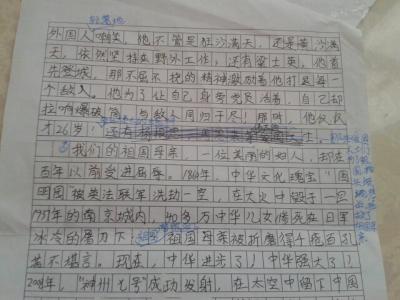 外国人嘲笑，他不管是狂沙满天，还是黄沙满
天，依然坚持在野外工作，还有梁士英，他首
先登城，那不屈不挠的精神激励着他打退每一
个敌人。他为了让自己身旁党员活着，自己却
拉响爆破筒，与敌人同归于尽！那时，他仅仅
才26岁！还有
我们的祖国母亲，一位美丽的妇人，却在
百年以前受进屈辱。1860年，中华文化瑰宝“圆
明园”被英法联军洗劫一空，在大火中毁于一旦
1937年的南京城内，30多万中华儿女惨死在日军
冰冷的屠刀下，祖国母亲被折磨得千疮百孔
苦不堪言。现在，中华进步了！中华强大了！
年，“神州七号”成功发射，在太空中留下中国